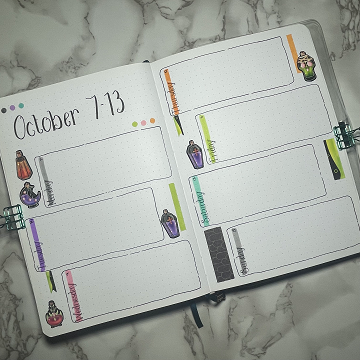 October 7-13
Monday
Tuesday
Wednesday
Thursday
Friday
Saturday
Sunday